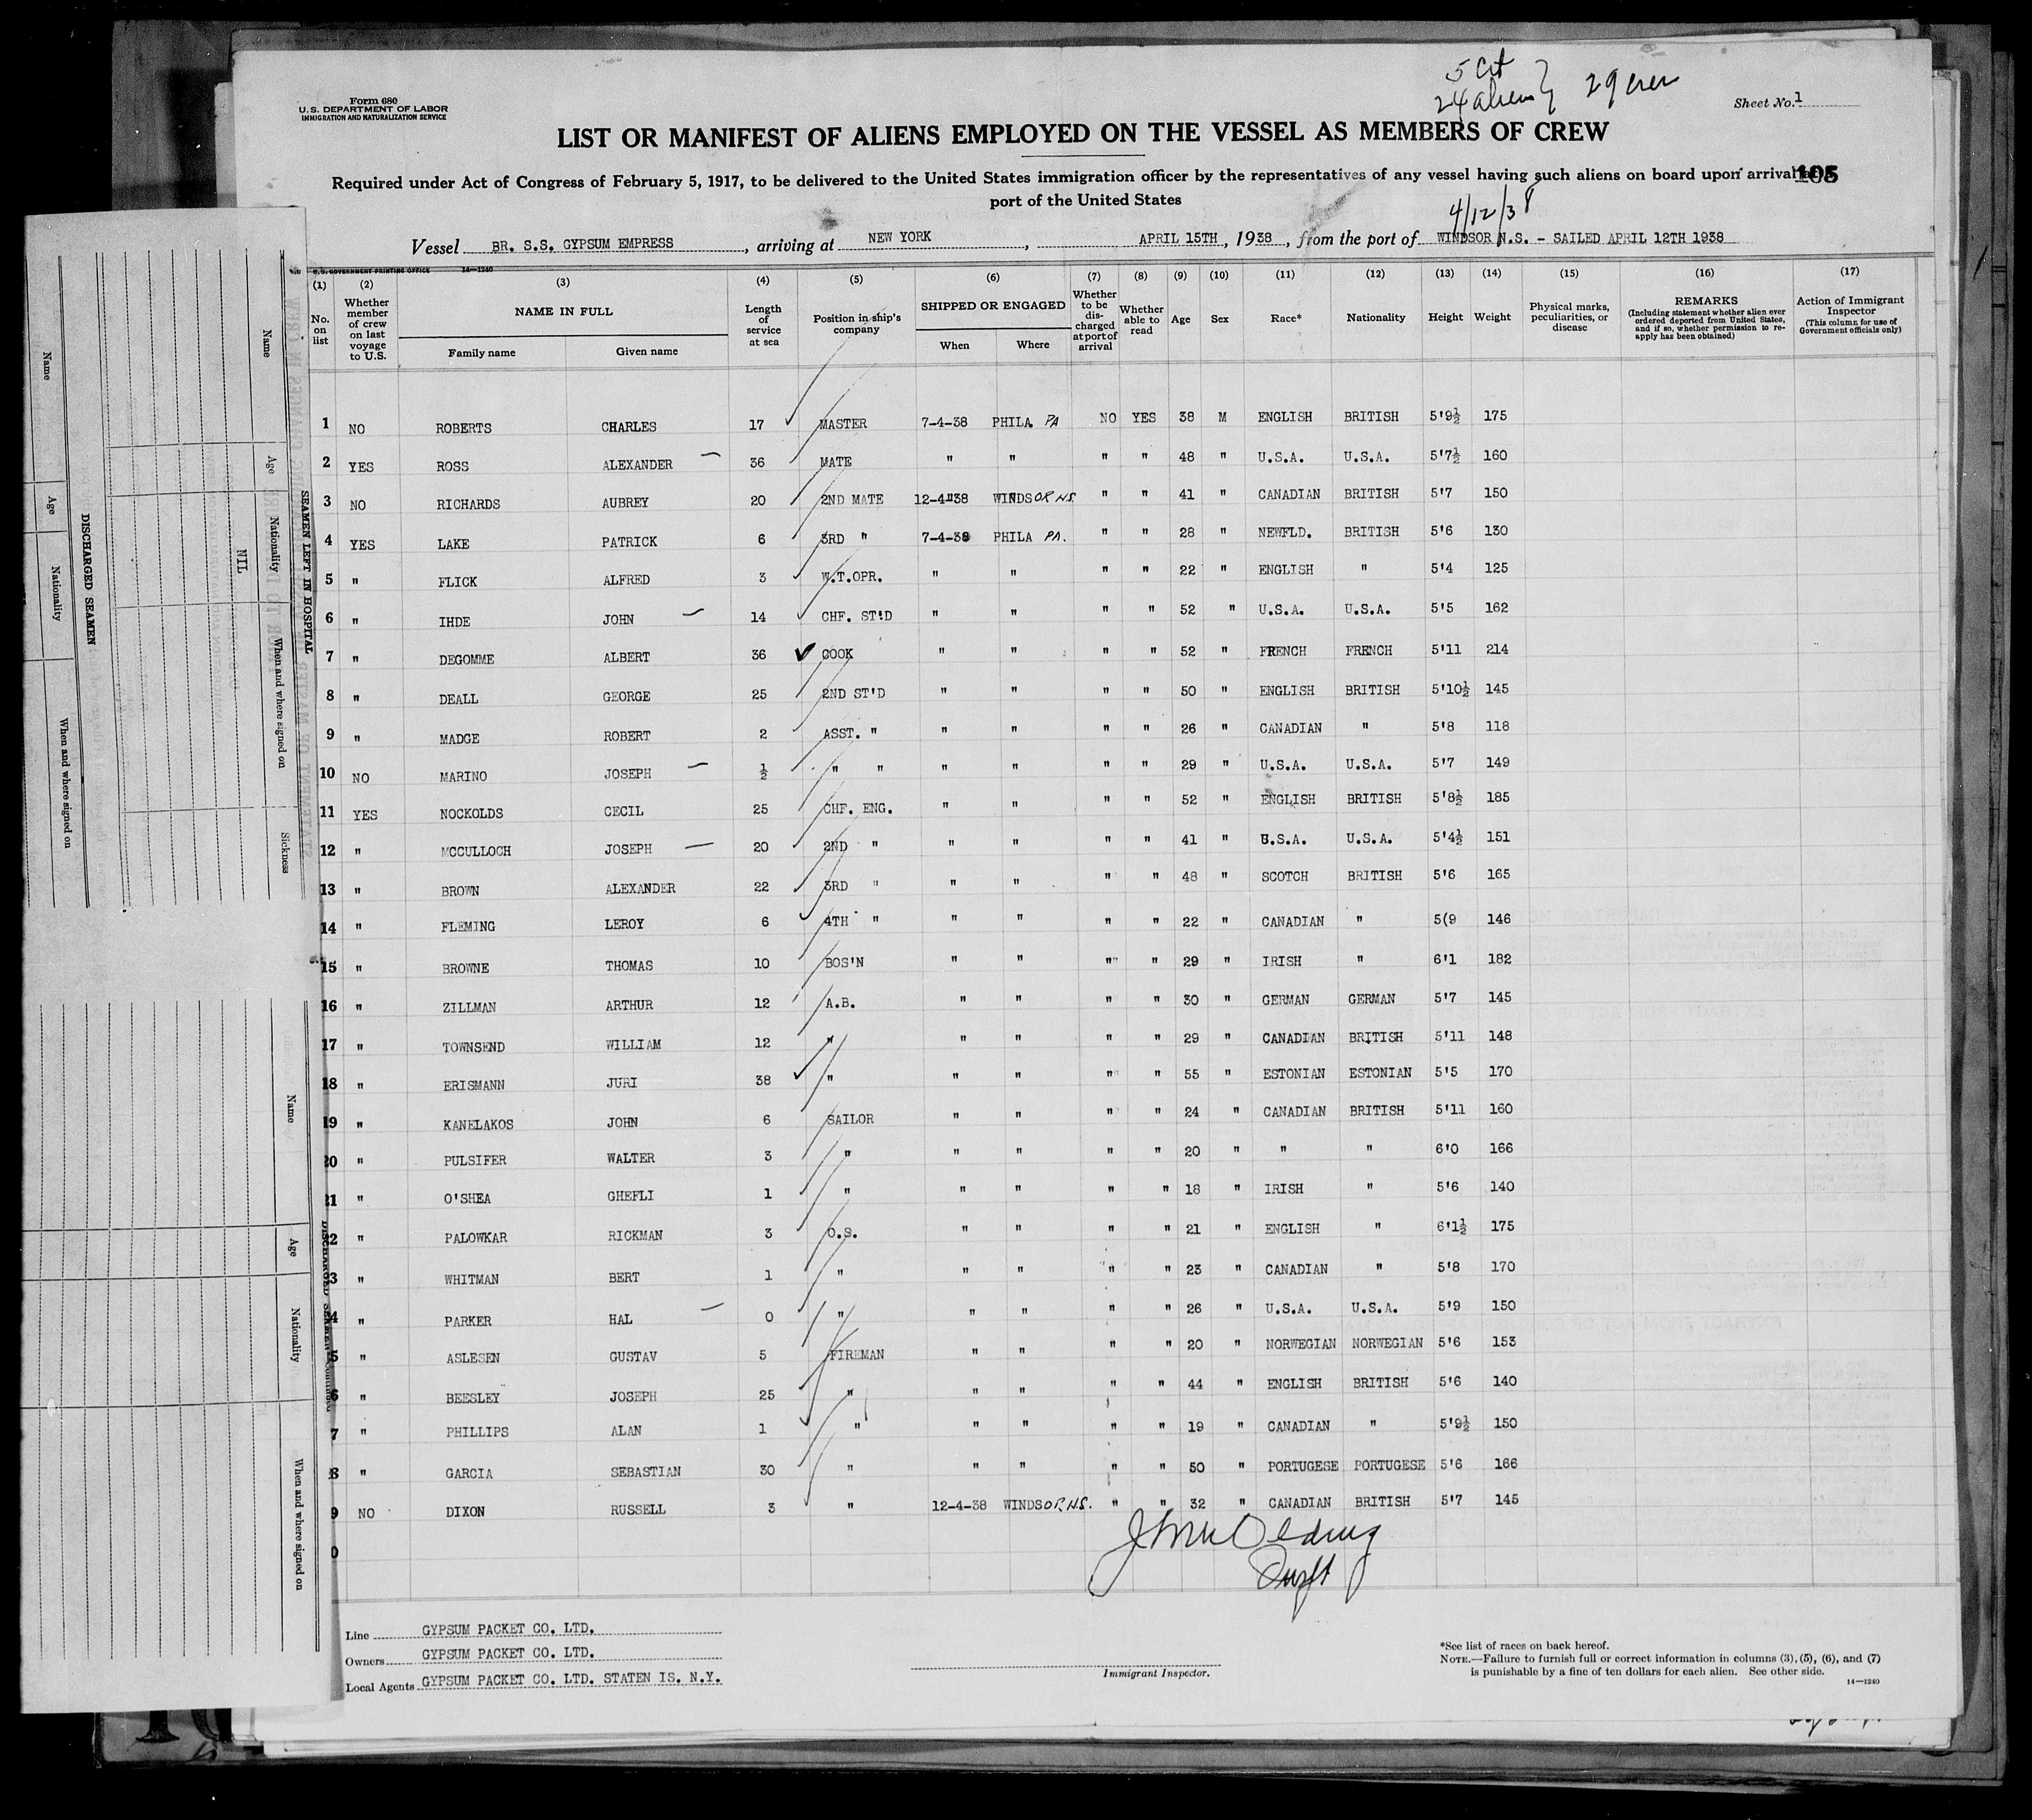 5 Cit
24 aliens } 29 crew
Form 680
U.S. DEPARTMENT OF LABOR
IMMIGRATION AND NATURALIZATION SERVICE
Sheet No. 1
LIST OR MANIFEST OF ALIENS EMPLOYED ON THE VESSEL AS MEMBERS OF CREW
Required under Act of Congress of February 5, 1917, to be delivered to the United States immigration officer by the representatives of any vessel having such aliens on board upon arrival at a 105
port of the United States
4/12/38
Vessel BR. S.S. GYPSUM EMPRESS, arriving at NEW YORK, APRIL 15TH, 1938, from the port of WINDSOR N.S. - SAILED APRIL 12TH 1938
U.S. GOVERNMENT PRINTING OFFICE 14—1240
(1) No. on list
(2) Whether member of crew on last voyage to U.S.
(3) NAME IN FULL Family name Given name
(4) Length of service at sea
(5) Position in ship's company
(6) SHIPPED OR ENGAGED When Where
(7) Whether to be discharged at port of arrival
(8) Whether able to read
(9) Age
(10) Sex
(11) Race*
(12) Nationality
(13) Height
(14) Weight
(15) Physical marks, peculiarities, or disease
(16) REMARKS (Including statement whether alien ever ordered deported from United States, and if so, whether permission to reapply has been obtained)
(17) Action of Immigrant Inspector (This column for use of Government officials only)
1 NO ROBERTS CHARLES 17 MASTER 7-4-38 PHILA PA NO YES 38 M ENGLISH BRITISH 5'9½ 175
2 YES ROSS ALEXANDER 36 MATE " " " " 48 " U.S.A. U.S.A. 5'7½ 160
3 NO RICHARDS AUBREY 20 2ND MATE 12-4-38 WINDSOR NS. " " 41 " CANADIAN BRITISH 5'7 150
4 YES LAKE PATRICK 6 3RD " 7-4-38 PHILA PA. " " 28 " NEWFLD. BRITISH 5'6 130
5 " FLICK ALFRED 3 W.T.OPR. " " " " 22 " ENGLISH " 5'4 125
6 " IHDE JOHN 14 CHF. ST'D " " " " 52 " U.S.A. U.S.A. 5'5 162
7 " DEGOMME ALBERT 36 COOK " " " " 52 " FRENCH FRENCH 5'11 214
8 " DEALL GEORGE 25 2ND ST'D " " " " 50 " ENGLISH BRITISH 5'10½ 145
9 " MADGE ROBERT 2 ASST. " " " " " 26 " CANADIAN " 5'8 118
10 NO MARINO JOSEPH ½ " " " " " " 29 " U.S.A. U.S.A. 5'7 149
11 YES NOCKOLDS CECIL 25 CHF. ENG. " " " " 52 " ENGLISH BRITISH 5'8½ 185
12 " MCCULLOCH JOSEPH 20 2ND " " " " " 41 " U.S.A. U.S.A. 5'4½ 151
13 " BROWN ALEXANDER 22 3RD " " " " " 48 " SCOTCH BRITISH 5'6 165
14 " FLEMING LEROY 6 4TH " " " " " 22 " CANADIAN " 5(9 146
15 " BROWNE THOMAS 10 BOS'N " " " " 29 " IRISH " 6'1 182
16 " ZILLMAN ARTHUR 12 A.B. " " " " 30 " GERMAN GERMAN 5'7 145
17 " TOWNSEND WILLIAM 12 " " " " " 29 " CANADIAN BRITISH 5'11 148
18 " ERISMANN JURI 38 " " " " " 55 " ESTONIAN ESTONIAN 5'5 170
19 " KANELAKOS JOHN 6 SAILOR " " " " 24 " CANADIAN BRITISH 5'11 160
20 " PULSIFER WALTER 3 " " " " " 20 " " " 6'0 166
21 " O'SHEA GHEFLI 1 " " " " " 18 " IRISH " 5'6 140
2 " PALOWKAR RICKMAN 3 O.S. " " " " 21 " ENGLISH " 6'1½ 175
3 " WHITMAN BERT 1 " " " " " 23 " CANADIAN " 5'8 170
4 " PARKER HAL 0 " " " " " 26 " U.S.A. U.S.A. 5'9 150
5 " ASLESEN GUSTAV 5 FIREMAN " " " " 20 " NORWEGIAN NORWEGIAN 5'6 153
6 " BEESLEY JOSEPH 25 " " " " " 44 " ENGLISH BRITISH 5'6 140
7 " PHILLIPS ALAN 1 " " " " " 19 " CANADIAN " 5'9½ 150
8 " GARCIA SEBASTIAN 30 " " " " " 50 " PORTUGESE PORTUGESE 5'6 166
9 NO DIXON RUSSELL 3 " 12-4-38 WINDSOR, NS. " " 32 " CANADIAN BRITISH 5'7 145
0
Line GYPSUM PACKET CO. LTD.
Owners GYPSUM PACKET CO. LTD.
Local Agents GYPSUM PACKET CO. LTD. STATEN IS. N.Y.
Immigrant Inspector.
*See list of races on back hereof.
NOTE.—Failure to furnish full or correct information in columns (3), (5), (6), and (7)
is punishable by a fine of ten dollars for each alien. See other side.
14—1240
SEAMEN LEFT IN HOSPITAL
Name
Age
Nationality
When and where signed on
Sickness
NIL
DISCHARGED SEAMEN
Name
Age
Nationality
When and where signed on
Name
Age
Nationality
When and where signed on